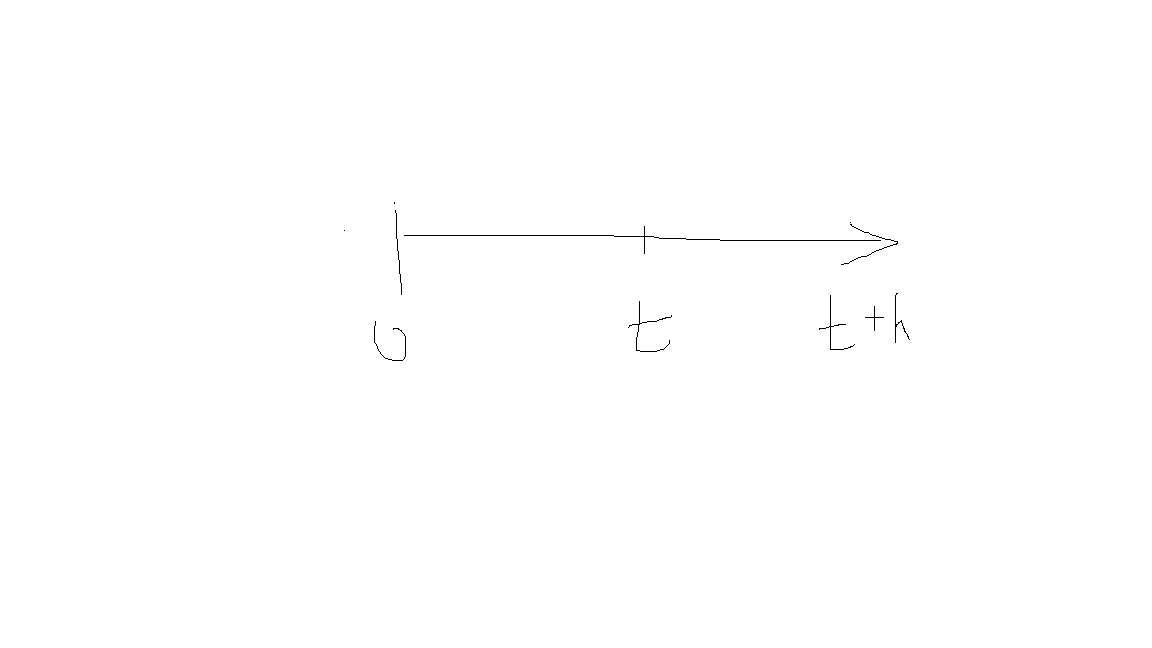 0 t t+h